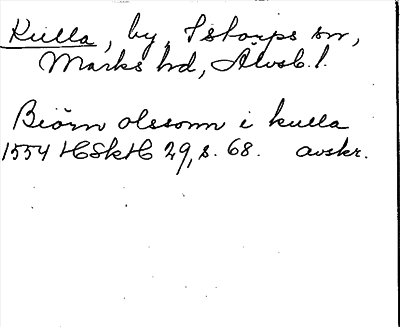 Kulla, by, Istorps sn,
Marks hd, Älvsb. l.
Biörn olssonn i kulla
1554 HSkH 29, s. 68. avskr.